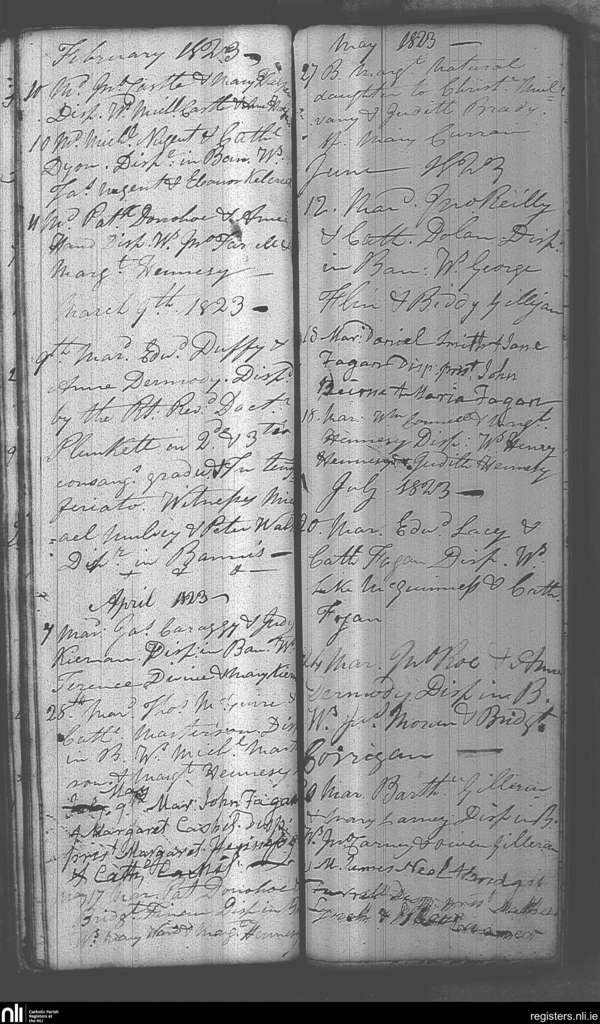 February 1823 —
10 Md. Jno. Castle & Mary
Disp. Wd. Michl. Castle & Anne
10 Md. Michl. Nugent & Cathe.
Dyon. Dispd. in Ban. Ws.
Jas. Nugent & Elounor
11 Md. Patk. Donohoe & Anne
Hand Disp. Ws. Jno. Farrell &
Margt. Hennesy —
March 9th. 1823 —
9th. Mard. Edwd. Duffy &
Anne Dermody. Dispd.
by the Rt. Revd. Doctr.
Plunkett in 2do. & 3tio.
consangs. gradu & in temp
feriato. Witnesses Mic
ael Mulvey & Peter Wal
Dispr. in Bannis —
April 1823 —
7 Mard. Jas. Caraggy & Judy
Kiernan. Disp in Ban. Ws
Terence Devine & Mary Kiern
28th. Mard. Thos. McGuire &
Cathe. Masterson Dis
in B. Ws. Michl. Mast
son & Margt. Hennesy
May
9th Mar. John Fagan
& Margaret Casher. disp.
prest. Margaret
& Cathe.
17 Mar. Pat Donohoe &
Bridgt. Disp in B
Ws. Mary Hand & Margt. Hennesy
May 1823 —
27 B. Margt. natural
daughter to Christr. Mul=
vany & Judith Brady.
Sp. Mary Curran
June 1823
12. Mard. Jno Reilly
& Cath. Dolan Disp.
in Ban: Ws. George
Flin & Biddy Gilligan
18. Mar. Daniel Smith & Jane
Fagan Disp. prest. John
Beirne & Maria Fagan
18. Mar: Wm. Connell & Margt.
Hennesy Disp: Ws. Henry
Hennesy & Judith Hennesy
July 1823 —
20. Mar. Edwd. Lacey &
Cath Fagan Disp. Ws.
Luke McGuinness & Cath.
Fagan
24 Mar. Jno Roe & Anne
Dermody Disp in B.
Ws. Jas. Moran & Bridgt.
Corrigan —
Mar. Barthw. Gilleran
& Mary Carney Disp in B.
Ws. Jno Carney & Owen Gilleran
M. James Neal & Bridgt
Farrell Disp. prest. Matthew
Lynch &
nli
Catholic Parish
Registers at
the NLI
registers.nli.ie